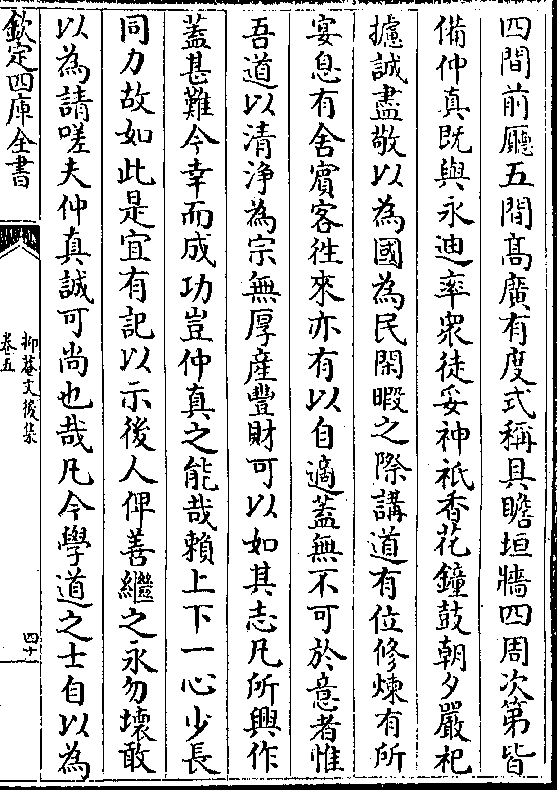 四間前廳五間髙廣有度式稱具瞻垣牆四周次第皆
備仲真既與永迪率衆徒妥神祇香花鐘鼓朝夕嚴祀
攄誠盡敬以為國為民閑暇之際講道有位修煉有所
宴息有舍賔客徃來亦有以自適蓋無不可於意者惟
吾道以清浄為宗無厚産豐財可以如其志凡所興作
蓋甚難今幸而成功豈仲真之能哉賴上下一心少長
同力故如此是宜有記以示後人俾善繼之永勿壊敢
以為請嗟夫仲真誠可尚也哉凡今學道之士自以為
欽定四庫全書
抑菴文後集
卷五
四十